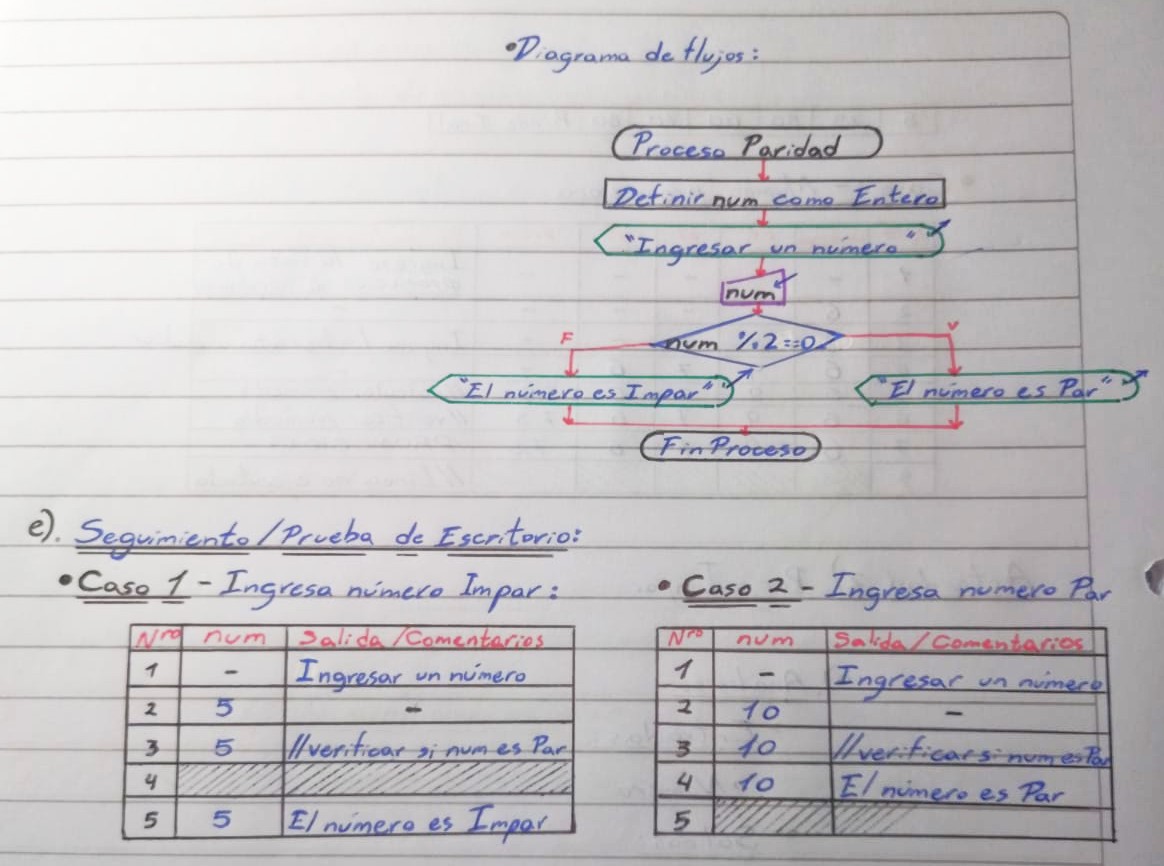 •Diagrama de flujos:
Proceso Paridad
Definir num como Entero
"Ingresar un número"
num
num %2==0
F
V
"El número es Impar"
"El número es Par"
Fin Proceso
e). Seguimiento/Prueba de Escritorio:
•Caso 1 - Ingresa número Impar:
Nro num Salida/Comentarios
1 - Ingresar un número
2 5 -
3 5 //verificar si num es Par
4
5 5 El número es Impar
• Caso 2 - Ingresa numero Par
Nro num Salida/Comentarios
1 - Ingresar un número
2 10 -
3 10 //verificar si num es Par
4 10 El número es Par
5